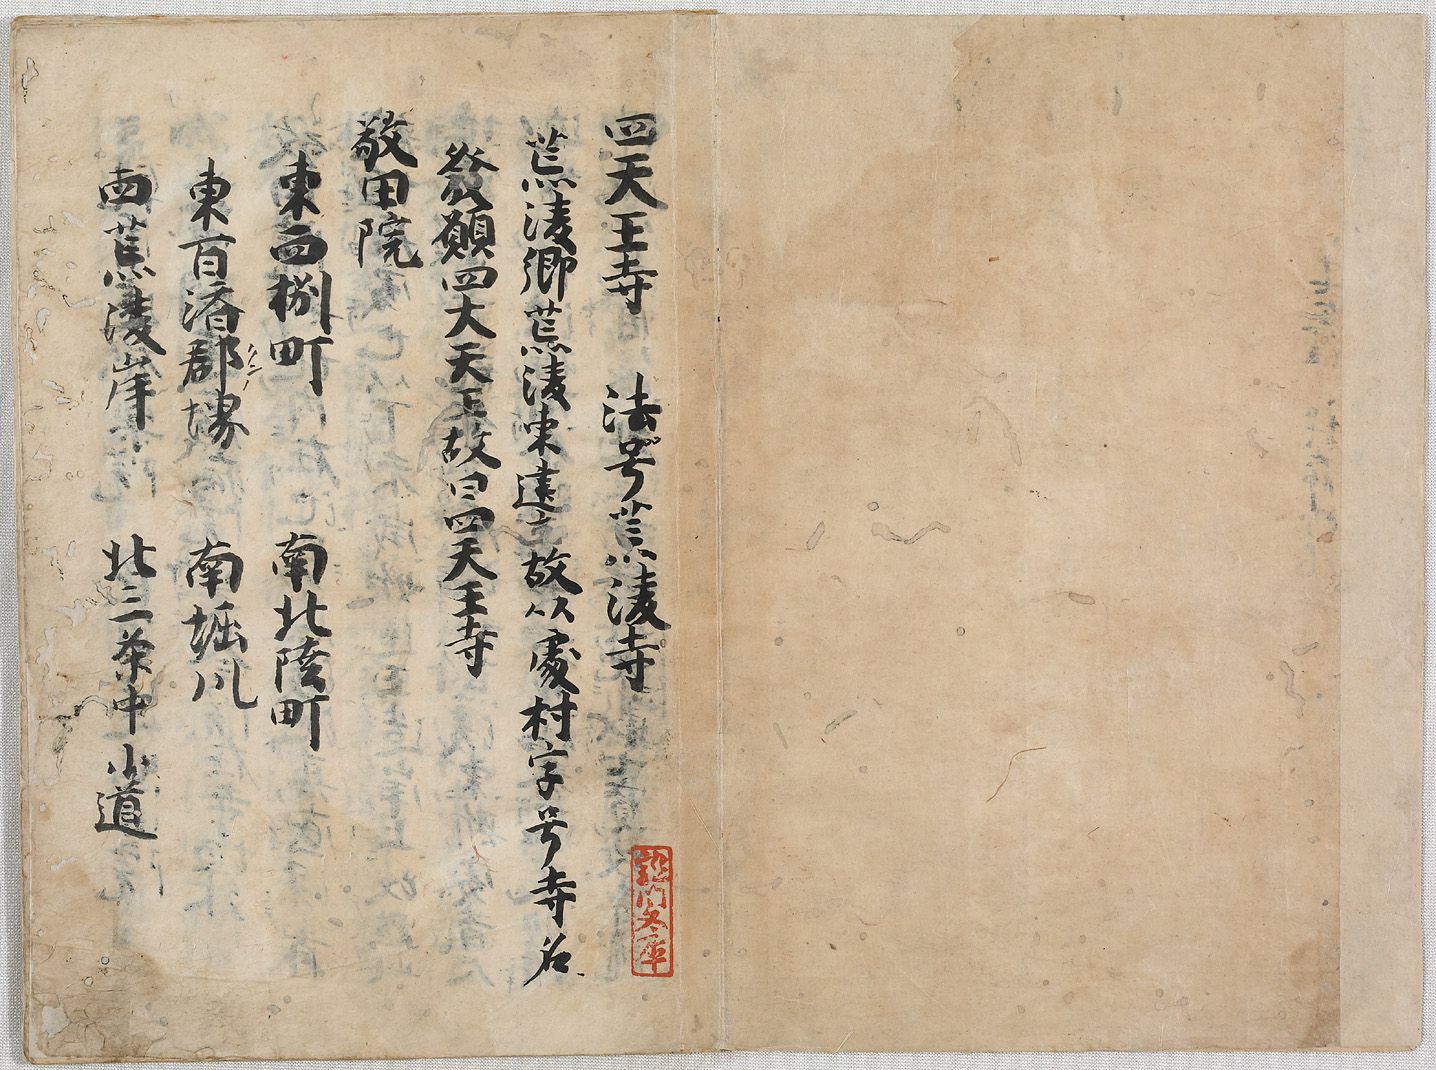 四天王寺　法号荒陵寺
荒陵郷荒陵東建立故以處村字号寺名
發願四大天王故曰四天王寺
敬田院
東西捌町　南北陸町
東百濟郡堺　南堀川
西荒陵岸　北三条中小道
門文庫